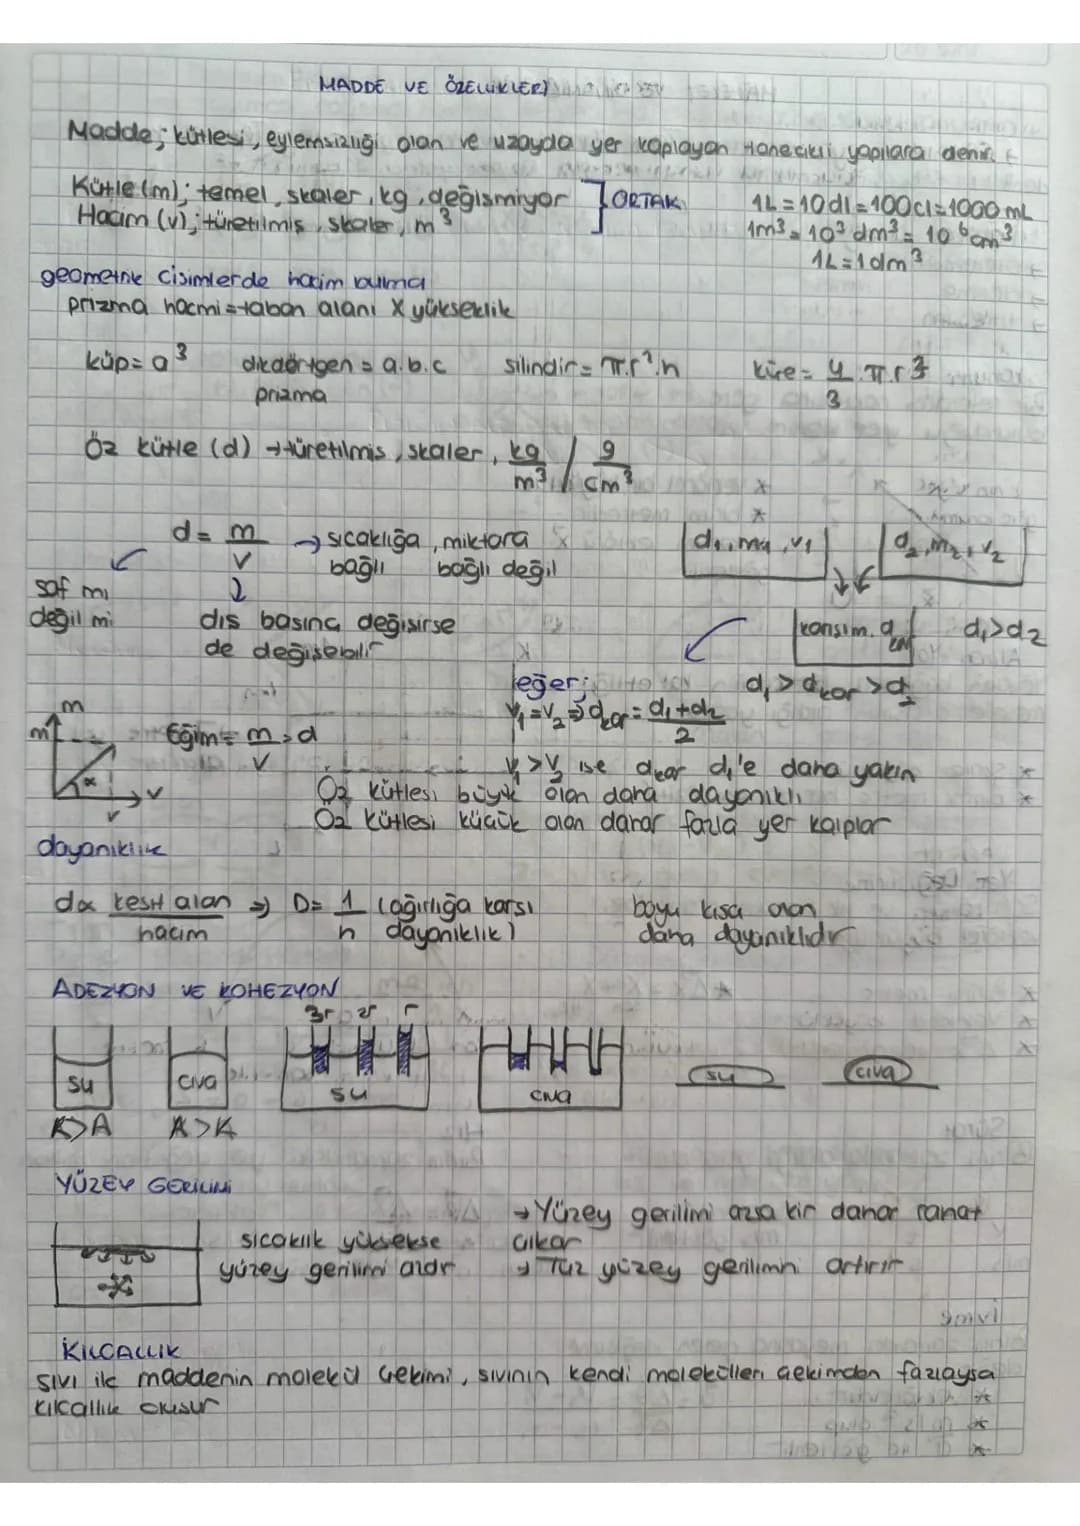 MADDE VE ÖZELLİKLERİ
Madde; kütlesi, eylemsizliği olan ve uzayda yer kaplayan tanecikli yapılara denir.
Kütle (m); temel, skaler, kg, değişmiyor
Hacim (v); türetilmiş, skaler, m³
ORTAK
1L = 10dl = 100cl = 1000 mL
1m³ = 10³ dm³ = 10⁶ cm³
1L = 1dm³
geometrik cisimlerde hacim bulma
prizma hacmi = taban alanı X yükseklik
küp = a³ dikdörtgen prizma = a.b.c silindir = π.r².h küre = 4/3 .π.r³
Öz kütle (d) → türetilmiş, skaler, kg/m³ / g/cm³
d = m/v → sıcaklığa bağlı, miktara bağlı değil
saf mı
değil mi
dış basınç değişirse
de değişebilir
d₁, m₁, v₁
d₂, m₂, v₂
karışım. d
d₁>d₂
d₁ > dkar > d₂
eğer;
v₁ = v₂ ⇒ dkar = d₁+d₂/2
v₁ > v₂ ise dkar d₁'e daha yakın
m
m
α
v
v
Eğim = m/v = d
Öz kütlesi büyük olan daha dayanıklı
Öz kütlesi küçük olan daha fazla yer kaplar
dayanıklılık
dα kesit alan/hacim ⇒ D = 1/h (ağırlığa karşı dayanıklılık)
boyu kısa olan
daha dayanıklıdır
ADEZYON VE KOHEZYON
3r 2r r
su
civa
su
civa
su
civa
K>A A>K
YÜZEY GERİLİMİ
sıcaklık yüksekse
yüzey gerilimi azdır
→ Yüzey gerilimi azsa kir daha rahat
çıkar
→ Tuz yüzey gerilimini artırır
KILCALLIK
sıvı ile maddenin molekül çekimi, sıvının kendi molekülleri çekimden fazlaysa
kılcallık oluşur